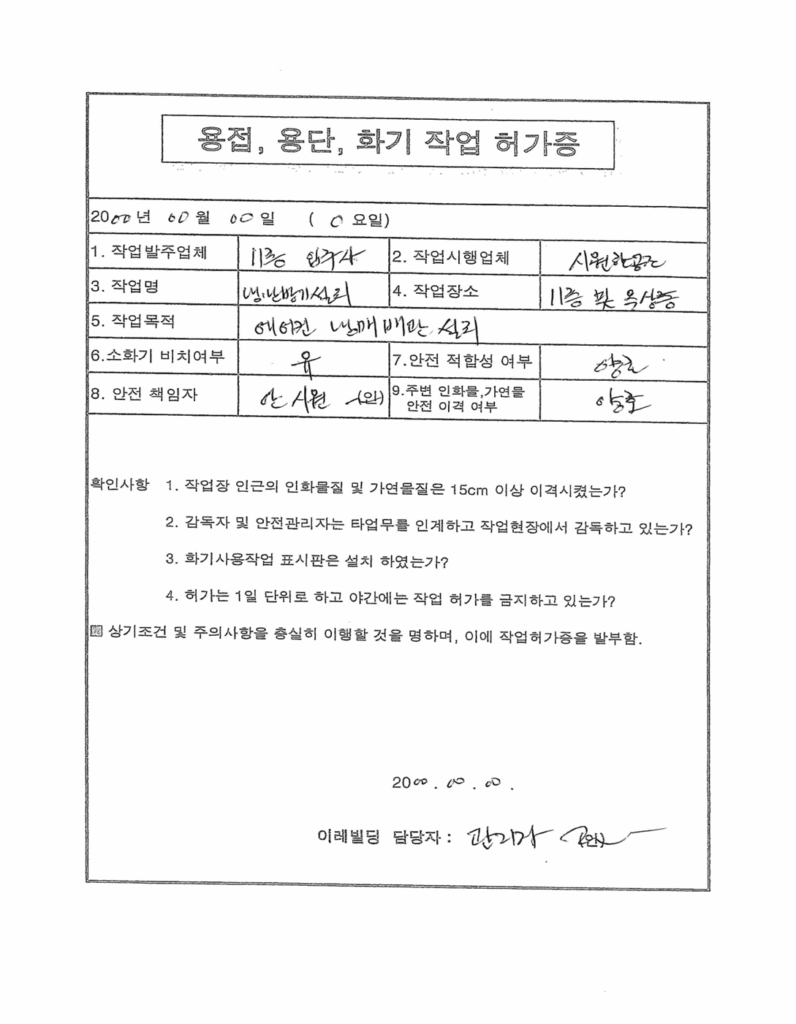 용접, 용단, 화기 작업 허가증
2000년 00월 00일 ( 0요일)
1. 작업발주업체 11층 입주사 2. 작업시행업체 시원한공간
3. 작업명 냉·난방기설치 4. 작업장소 11층 및 옥상층
5. 작업목적 에어컨 냉매배관 설치
6.소화기 비치여부 유 7.안전 적합성 여부 양호
8. 안전 책임자 안시원 (인) 9.주변 인화물,가연물
안전 이격 여부 양호
확인사항 1. 작업장 인근의 인화물질 및 가연물질은 15cm 이상 이격시켰는가?
2. 감독자 및 안전관리자는 타업무를 인계하고 작업현장에서 감독하고 있는가?
3. 화기사용작업 표시판은 설치 하였는가?
4. 허가는 1일 단위로 하고 야간에는 작업 허가를 금지하고 있는가?
상기조건 및 주의사항을 충실히 이행할 것을 명하며, 이에 작업허가증을 발부함.
2000 . 00 . 00 .
이레빌딩 담당자 : 관리자 (인)